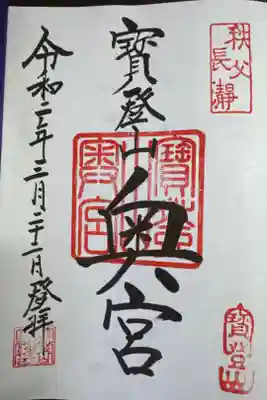 秩父
長瀞
寶登山
寶登山奥宮
寶登
山
奥宮
令和二年三月二十二日登拝